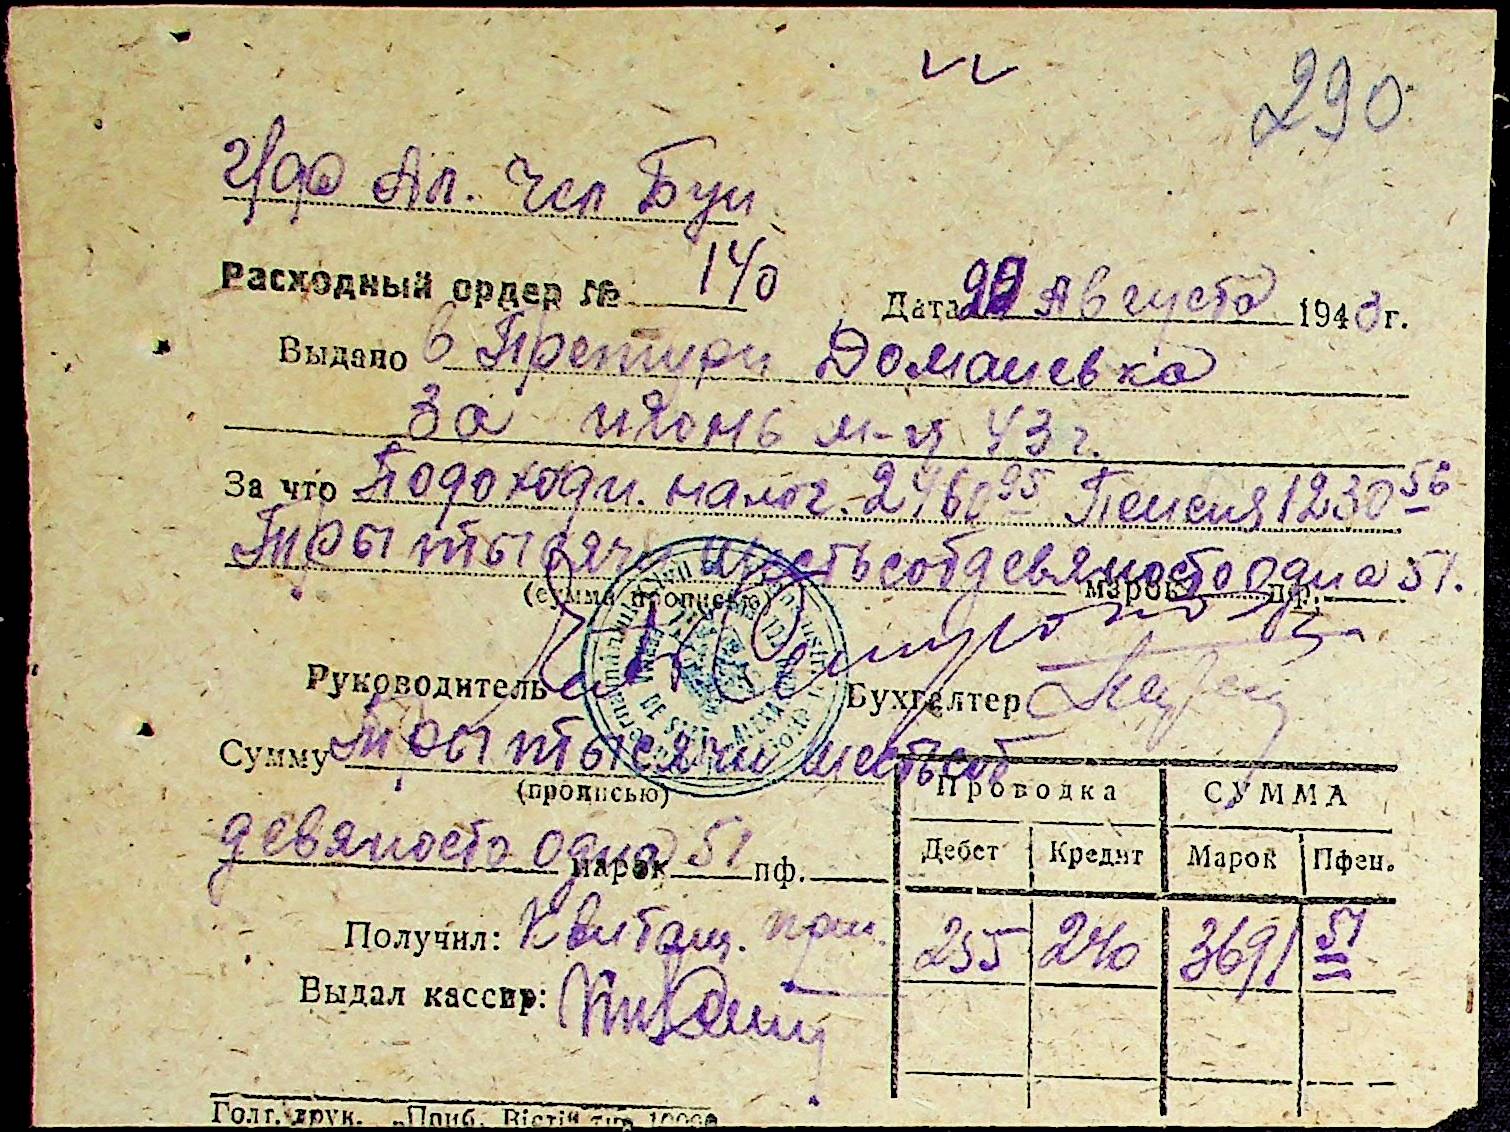 290
Ал. Чел Буи
Расходный ордер № 140
Дата Августа 1943 г.
Выдано в Претури Доманевка
За июнь м-ц 43 г.
За что Подоходн. налог. 2460 95 Пенсия 1230 56
Три тысячи шестьсот девяносто одна 51.
(сумма прописью) марок пф.
Руководитель Бухгалтер
Сумму Три тысячи шестьсот
(прописью)
девяносто одна марок 51 пф.
Проводка СУММА
Дебет Кредит Марок Пфен.
255 240 3691 51
Получил: Квитанц. прил.
Выдал кассир:
Голт. друк. „Приб. Вісті“